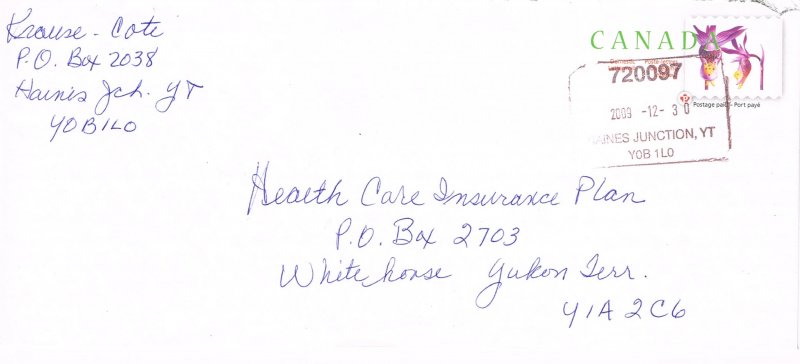 Krause - Cote
P.O. Box 2038
Haines Jch. YT
Y0B1L0
CANADA
Domestic
720097
2009 -12- 30
HAINES JUNCTION, YT
Y0B 1L0
P
Postage paid - Port payé
Health Care Insurance Plan
P.O. Box 2703
Whitehorse Yukon Terr.
Y1A 2C6